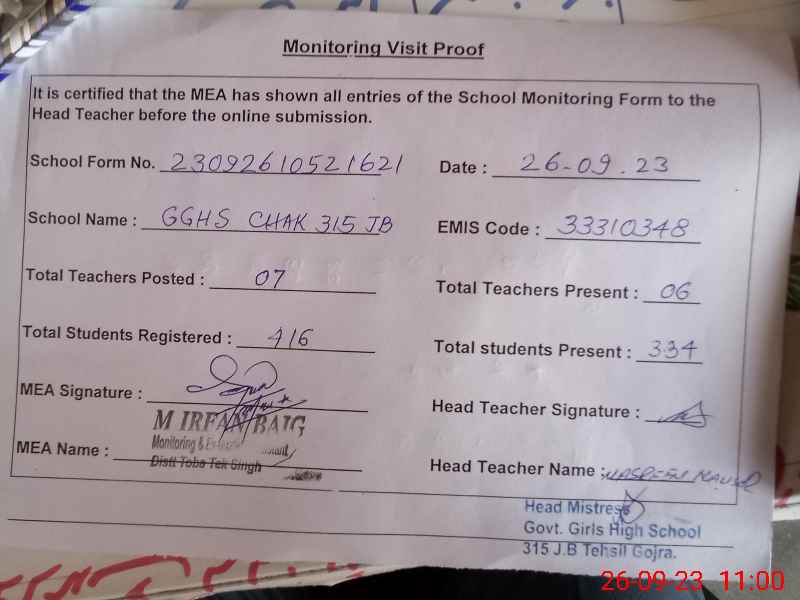 Monitoring Visit Proof
It is certified that the MEA has shown all entries of the School Monitoring Form to the
Head Teacher before the online submission.
School Form No. 23092610521621 Date : 26-09.23
School Name : GGHS CHAK 315 JB EMIS Code : 33310348
Total Teachers Posted : 07 Total Teachers Present : 06
Total Students Registered : 416 Total students Present : 334
MEA Signature : Head Teacher Signature :
M IRFAN BAIG
Monitoring &
MEA Name : Head Teacher Name :
Distt Toba Tek Singh
Head Mistress
Govt. Girls High School
315 J.B Tehsil Gojra.
26-09-23 11:00